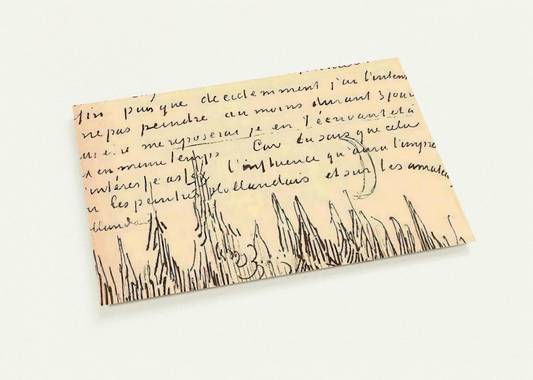 fin puisque décidemment j'ai l'inten
ne pas peindre au moins durant 3 jour
me reposerai je en t'écrivant et à
en meme temps Car tu sais que cela
intéresse assez l'influence qu'aura l'impre
les peintres Hollandais et sur les amateu
Hollanda